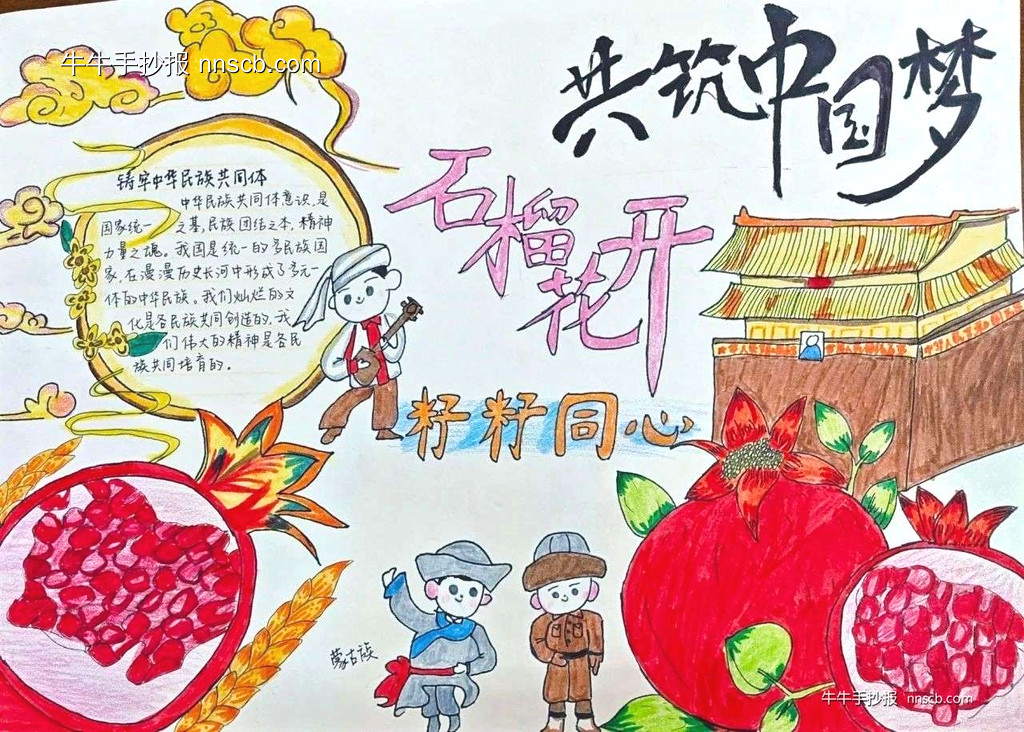 牛牛手抄报 nnscb.com
共筑中国梦
石榴花开
籽籽同心
铸牢中华民族共同体
中华民族共同体意识是
国家统一之基,民族团结之本,精神
力量之魂。我国是统一的多民族国
家,在漫漫历史长河中形成了多元一
体的中华民族。我们灿烂的文
化是各民族共同创造的,我
们伟大的精神是各民
族共同培育的。
蒙古族
牛牛手抄报 nnscb.com